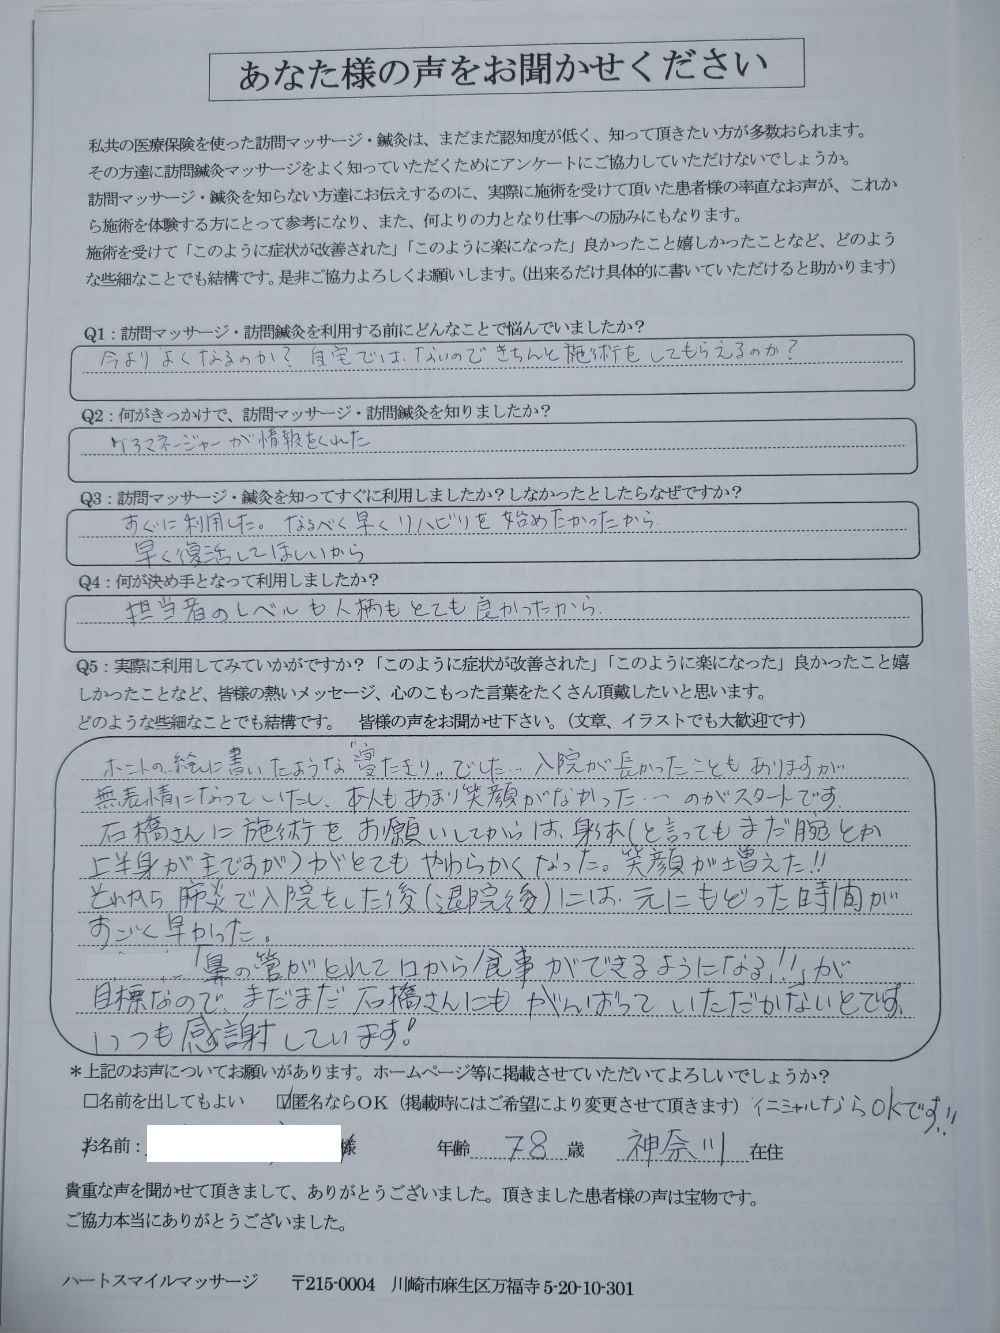 あなた様の声をお聞かせください
私共の医療保険を使った訪問マッサージ・鍼灸は、まだまだ認知度が低く、知って頂きたい方が多数おられます。
その方達に訪問鍼灸マッサージをよく知っていただくためにアンケートにご協力していただけないでしょうか。
訪問マッサージ・鍼灸を知らない方達にお伝えするのに、実際に施術を受けて頂いた患者様の率直なお声が、これか
ら施術を体験する方にとって参考になり、また、何よりの力となり仕事への励みにもなります。
施術を受けて「このように症状が改善された」「このように楽になった」良かったこと嬉しかったことなど、どのよう
な些細なことでも結構です。是非ご協力よろしくお願いします。（出来るだけ具体的に書いていただけると助かります）
Q1：訪問マッサージ・訪問鍼灸を利用する前にどんなことで悩んでいましたか？
今より よくなるのか？ 自宅では、ないので きちんと 施術を してもらえるのか？
Q2：何がきっかけで、訪問マッサージ・訪問鍼灸を知りましたか？
ケアマネージャーが情報をくれた
Q3：訪問マッサージ・鍼灸を知ってすぐに利用しましたか？しなかったとしたらなぜですか？
すぐに利用した。なるべく早くリハビリを始めたかったから
早く復活してほしいから
Q4：何が決め手となって利用しましたか？
担当者のレベルも人柄もとても良かったから.
Q5：実際に利用してみていかがですか？「このように症状が改善された」「このように楽になった」良かったこと嬉
しかったことなど、皆様の熱いメッセージ、心のこもった言葉をたくさん頂戴したいと思います。
どのような些細なことでも結構です。 皆様の声をお聞かせ下さい。（文章、イラストでも大歓迎です）
ホントの…絵に書いたような"寝たきり"でした… 入院が長かったこともありますが
無表情になっていたし、本人もあまり笑顔がなかった… のがスタートです.
石橋さんに施術をお願いしてからは、身体（と言ってもまだ腕とか
上半身が主ですが）がとてもやわらかくなった。笑顔が増えた!!
それから肺炎で入院をした後（退院後）には、元にもどった時間が
すごく早かった。
「鼻の管がとれて口から食事ができるようになる!!」が
目標なので、まだまだ石橋さんにもがんばっていただかないとです.
いつも感謝しています!
＊上記のお声についてお願いがあります。ホームページ等に掲載させていただいてよろしいでしょうか？
□名前を出してもよい ☑匿名ならＯＫ（掲載時にはご希望により変更させて頂きます）イニシャルならOKです!!
お名前： 様 年齢 78 歳 神奈川 在住
貴重な声を聞かせて頂きまして、ありがとうございました。頂きました患者様の声は宝物です。
ご協力本当にありがとうございました。
ハートスマイルマッサージ 〒215-0004 川崎市麻生区万福寺 5-20-10-301